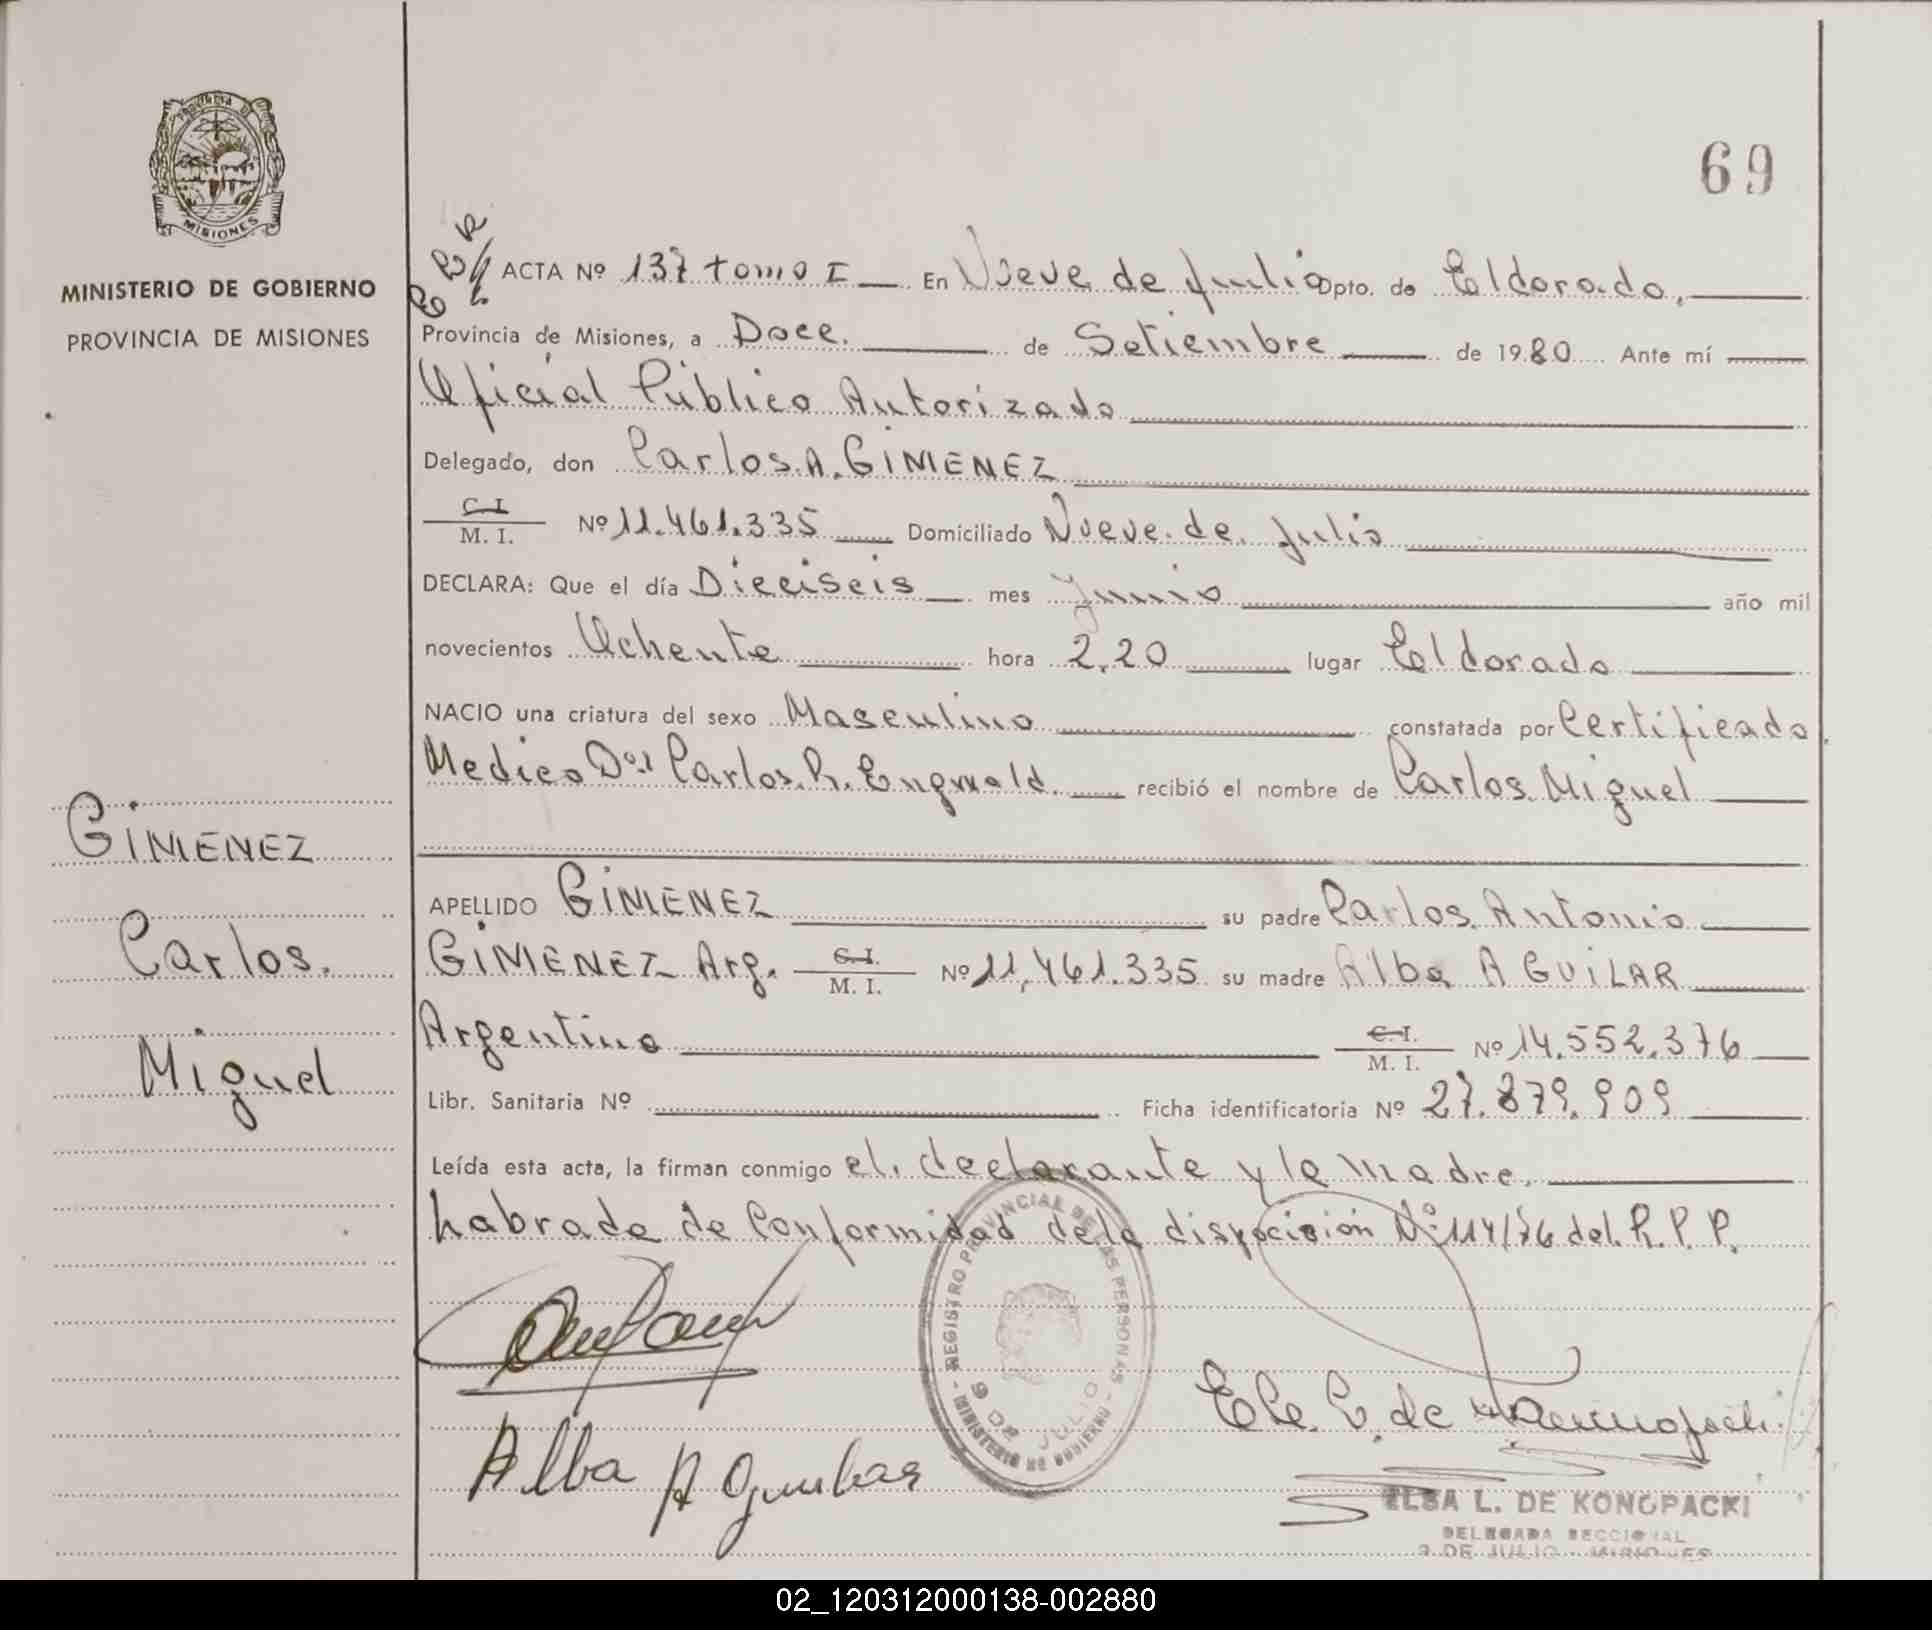 69
MINISTERIO DE GOBIERNO
PROVINCIA DE MISIONES
MISIONES
GIMENEZ
Carlos.
Miguel
ACTA Nº 137 tomo I En Nueve de Julio Dpto. de Eldorado,
Provincia de Misiones, a Doce. de Setiembre de 1980 Ante mí
Oficial Público Autorizado
Delegado, don Carlos. A. GIMENEZ
C. I.
M. I. Nº 11.461.335 Domiciliado Nueve. de. Julio
DECLARA: Que el día Dieciseis mes Junio año mil
novecientos Ochenta hora 2,20 lugar Eldorado
NACIO una criatura del sexo Masculino constatada por Certificado
Medico Dor Carlos. R. Engwald. recibió el nombre de Carlos. Miguel
APELLIDO GIMENEZ su padre Carlos. Antonio
GIMENEZ Arg. C. I. M. I. Nº 11,461.335 su madre Alba AGUILAR
Argentina C. I. M. I. Nº 14.552.376
Libr. Sanitaria Nº Ficha identificatoria Nº 27.879.909
Leída esta acta, la firman conmigo el. declarante y la Madre.
Labrada de Conformidad de la disposición Nº 114/76 del. R. P. P.
REGISTRO PROVINCIAL DE LAS PERSONAS - MINISTERIO DE GOBIERNO -
9 DE JULIO
Alba Aguilar
ELSA L. DE KONOPACKI
DELEGADA SECCIONAL
9 DE JULIO - MISIONES
02_120312000138-002880